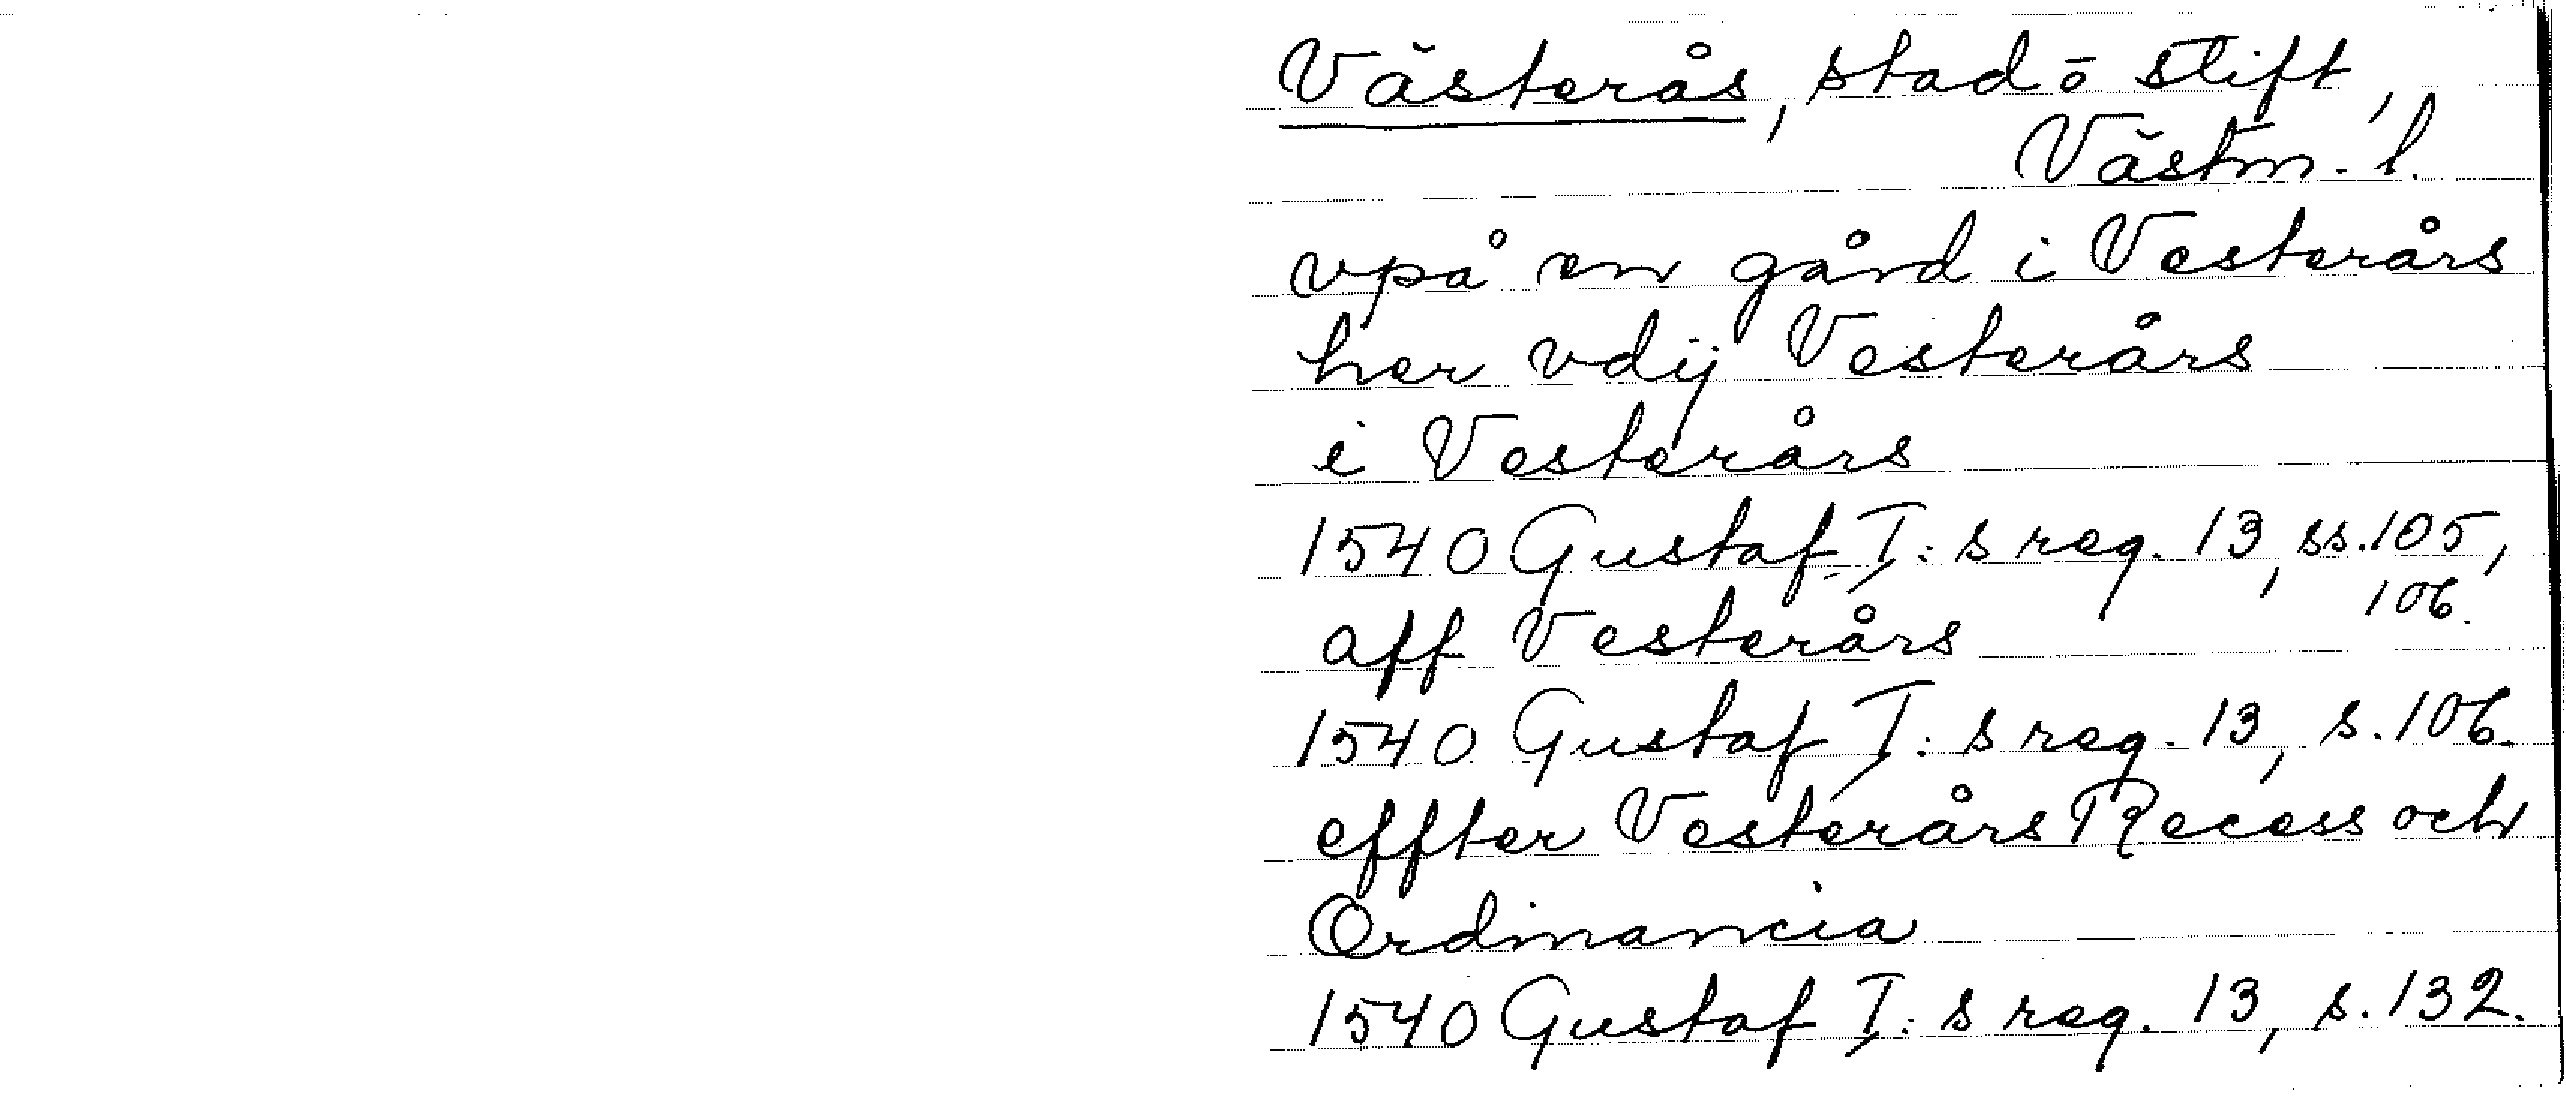 Västerås, stad o stift,
Västm. l.
vpå en gård i Vesterårs
her vdij Vesterårs
i Vesterårs
1540 Gustaf I: s reg. 13, ss. 105,
106.
aff Vesterårs
1540 Gustaf I: s reg. 13, s. 106.
effter Vesterårs Recess och
Ordinancia
1540 Gustaf I: s reg. 13, s. 132.